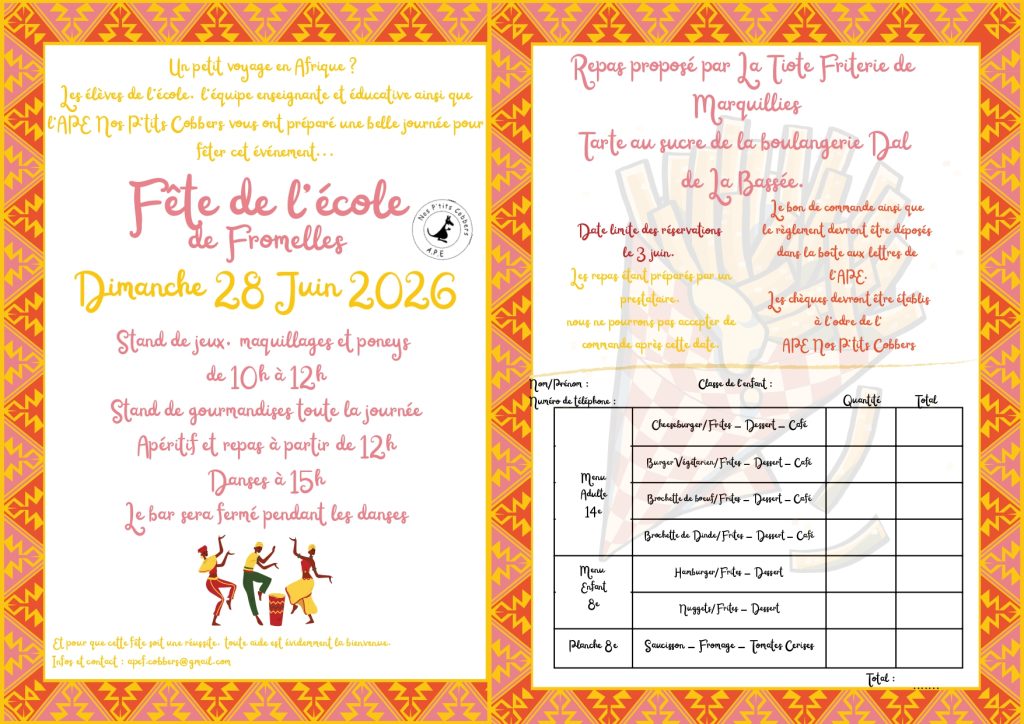 Un petit voyage en Afrique ?
Les élèves de l'école, l'équipe enseignante et éducative ainsi que
l'APE Nos P'tits Cobbers vous ont préparé une belle journée pour
fêter cet événement...
Fête de l'école
de Fromelles
Nos P'tits Cobbers
A.P.E
Dimanche 28 Juin 2026
Stand de jeux, maquillages et poneys
de 10h à 12h
Stand de gourmandises toute la journée
Apéritif et repas à partir de 12h
Danses à 15h
Le bar sera fermé pendant les danses
Et pour que cette fête soit une réussite, toute aide est évidemment la bienvenue.
Infos et contact : apef.cobbers@gmail.com
Repas proposé par La Tiote Friterie de
Marquillies
Tarte au sucre de la boulangerie Dal
de La Bassée.
Date limite des réservations
le 3 juin.
Les repas étant préparés par un
prestataire,
nous ne pourrons pas accepter de
commande après cette date.
Le bon de commande ainsi que
le règlement devront être déposés
dans la boîte aux lettres de
l'APE.
Les chèques devront être établis
à l'odre de l'
APE Nos P'tits Cobbers
Nom/Prénom : Classe de l'enfant :
Numéro de téléphone : Quantité Total
Menu
Adulte
14e
Cheeseburger/Frites – Dessert – Café
Burger Végétarien/Frites – Dessert – Café
Brochette de boeuf/Frites – Dessert – Café
Brochette de Dinde/Frites – Dessert – Café
Menu
Enfant
8e
Hamburger/Frites – Dessert
Nuggets/Frites – Dessert
Planche 8e Saucisson – Fromage – Tomates Cerises
Total : .......